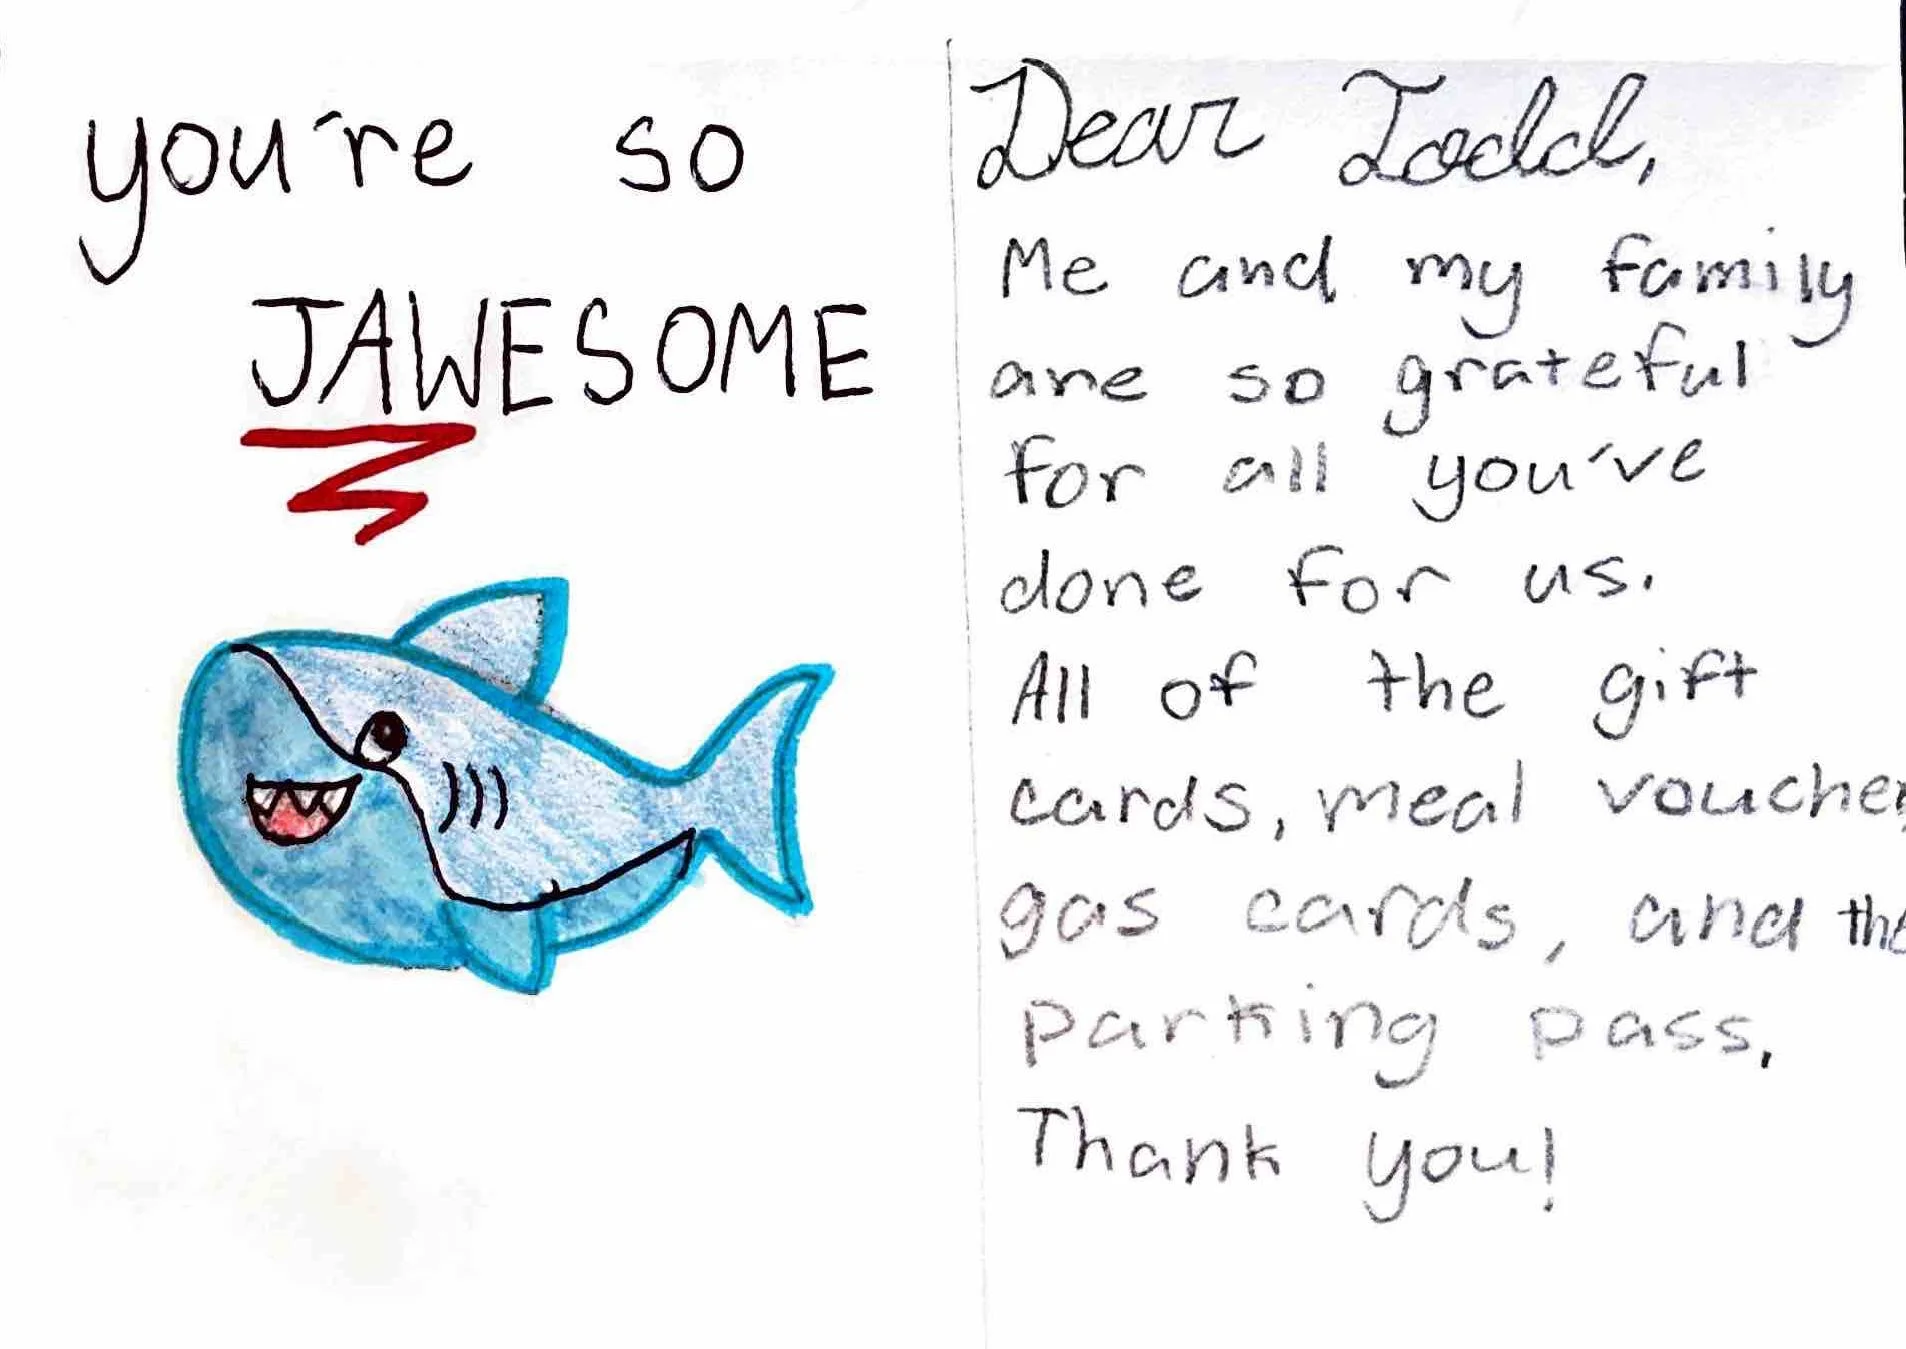 you're so
JAWESOME
Dear Todd,
Me and my family
are so grateful
for all you've
done for us.
All of the gift
cards, meal voucher
gas cards, and the
parking pass.
Thank you!